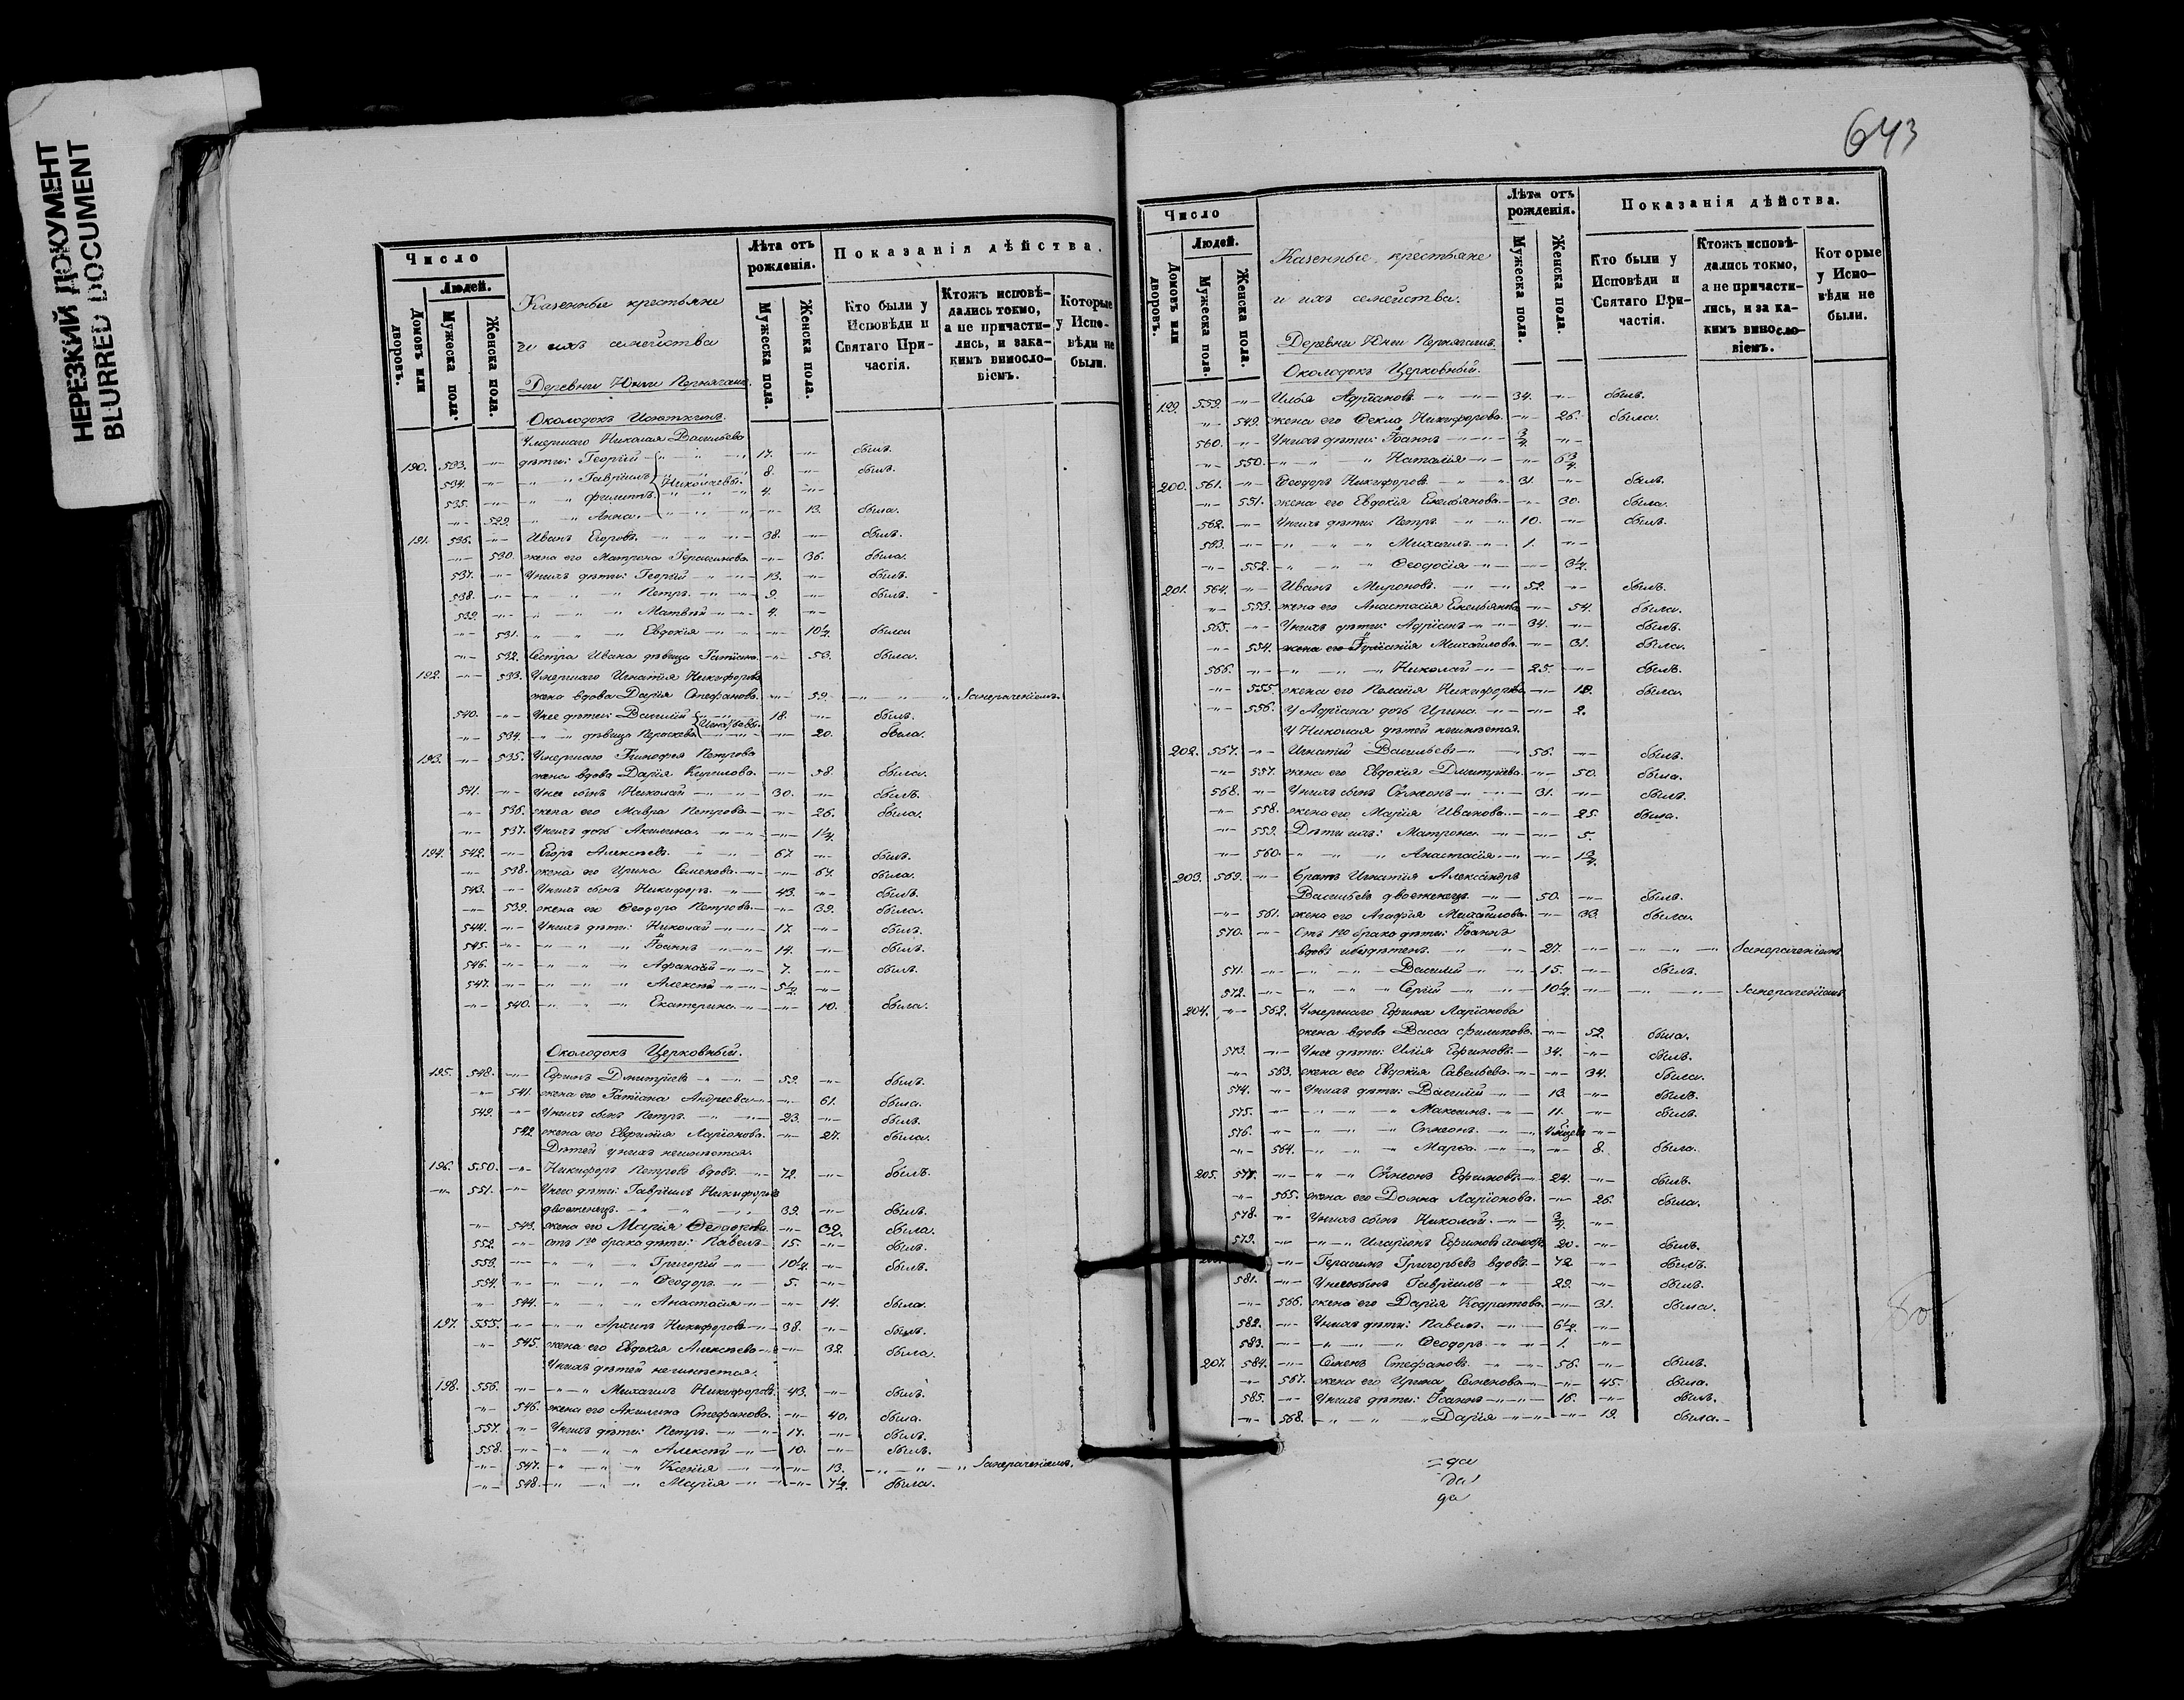 НЕРЕЗКИЙ ДОКУМЕНТ
BLURRED DOCUMENT
Число
Людей.
Домовъ или дворовъ.
Мужеска пола.
Женска пола.
Казенные крестьяне
и ихъ семейства
Деревни Юнги
Околодокъ
Лѣта отъ рожденія.
Мужеска пола.
Женска пола.
Показанія дѣйства.
Кто были у Исповѣди и Святаго Причастія.
Ктожъ исповѣдались токмо, а не причастились, и закакимъ винословіемъ.
Которые у Исповѣди не были.
Умершаго Николая Васильева
190. 533. дѣти: Георгій 17. былъ.
534. Гавріилъ Николаевы 8. былъ.
535. Филиппъ 4.
529. Анна 13. была.
191. 536. Иванъ Егоровъ 38. былъ.
530. жена его Матрона Герасимова 36. была.
537. Унихъ дѣти: Георгій 13. былъ.
538. Петръ 9. былъ.
539. Матвѣй 4.
531. Евдокія 10½ была
532. Сестра Ивана дѣвица Татіана 53. была.
192. 533. Умершаго Игнатія Никифорова
жена вдова Дарія Стефанова 59. Занерачениемъ.
540. Унее дѣти: Василій 18. былъ.
534. дѣвица Параскева Игнатьевы 20. была.
193. 535. Умершаго Тимофея Петрова
жена вдова Дарія Кирилова 58. была.
541. Унее сынъ Николай 30. былъ.
536. жена его Мавра Петрова 26. была.
537. Унихъ дочь Акилина 1¼
194. 542. Егоръ Алексѣевъ 67. былъ.
538. жена его Ирина Семенова 67. была.
543. Унихъ сынъ Никифоръ 43. былъ.
539. жена его Феодора Петрова 39. была.
544. Унихъ дѣти: Николай 17. былъ.
545. Іоаннъ 14. былъ.
546. Афанасій 7. былъ.
547. Алексѣй 5½
540. Екатерина 10. была.
Околодокъ Церковный.
195. 548. Ефимъ Дмитріевъ 59. былъ.
541. жена его Татіана Андреева 61. была.
549. Унихъ сынъ Петръ 23. былъ.
542. жена его Евфимія Ларіонова 27. была.
Дѣтей унихъ неимѣется.
196. 550. Никифоръ Петровъ вдовъ 72. былъ.
551. Унего дѣти: Гавріилъ Никифоровъ
двоеженецъ 39. былъ.
543. жена его Марія Феодорова 32. была.
552. отъ 1го брака дѣти: Павелъ 15. былъ.
553. Григорій 10½ былъ.
554. Феодоръ 5.
544. Анастасія 14. была.
197. 555. Архипъ Никифоровъ 38. былъ.
545. жена его Евдокія Алексѣева 32. была.
Унихъ дѣтей неимѣется.
198. 556. Михаилъ Никифоровъ 43. былъ.
546. жена его Акилина Стефанова 40. была.
557. Унихъ дѣти: Петръ 17. былъ.
558. Алексѣй 10. былъ.
547. Ксенія 13. Занерачениемъ.
548. Марія 7½ была.
643
Число
Людей.
Домовъ или дворовъ.
Мужеска пола.
Женска пола.
Казенные крестьяне
и ихъ семейства.
Деревни Юнги
Околодокъ Церковный.
Лѣта отъ рожденія.
Мужеска пола.
Женска пола.
Показанія дѣйства.
Кто были у Исповѣди и Святаго Причастія.
Ктожъ исповѣдались токмо, а не причастились, и за какимъ винословіемъ.
Которые у Исповѣди не были.
199. 559. Илья Адріановъ 34. былъ.
549. жена его Фекла Никифорова 26. была.
560. Унихъ дѣти: Іоаннъ ¾
550. Наталія 6¾
200. 561. Феодоръ Никифоровъ 31. былъ.
551. жена его Евдокія Емельянова 30. была.
562. Унихъ дѣти: Петръ 10. былъ.
563. Михаилъ 1.
552. Феодосія 3½
201. 564. Иванъ Мироновъ 52. былъ.
553. жена его Анастасія Емельянова 54. была.
565. Унихъ дѣти: Адріанъ 34. былъ.
554. жена его Михайлова 31. была.
566. Николай 25. былъ.
555. жена его Пелагія Никифорова 19. была
556. У Адріана дочь Ирина 2.
У Николая дѣтей неимѣется.
202. 567. Игнатій Васильевъ 56. былъ.
557. жена его Евдокія Дмитріева 50. была.
568. Унихъ сынъ Сѵмеонъ 31. былъ.
558. жена его Марія Иванова 25. была.
559. Дѣти ихъ: Матрона 5.
560. Анастасія 1¾
203. 569. Братъ Игнатія Александръ
Васильевъ двоеженецъ 50. былъ.
561. жена его Агафія Михайлова 33. была.
570. Отъ 1го брака дѣти: Іоаннъ
вдовъ ибездѣтенъ 27. Занерачениемъ
571. Василій 15. былъ.
572. Сергій 10½ Занерачениемъ
204. 562. Умершаго Ефима Ларіонова
жена вдова Васса Филипова 52. была.
573. Унее дѣти: Илія Ефимовъ 34. былъ.
563. жена его Евдокія Савельева 34. была.
574. Унихъ дѣти: Василій 13. былъ.
575. Максимъ 11. былъ.
576. Сѵмеонъ 4 мѣсяц
564. Марѳа 8. была.
205. 577. Сѵмеонъ Ефимовъ 24. былъ.
565. жена его Домна Ларіонова 26. была.
578. Унихъ сынъ Николай ¾
579. Иларіонъ Ефимовъ холостъ 20. былъ.
Герасимъ Григорьевъ вдовъ 72 былъ.
581. Унегосынъ Гавріилъ 29. былъ.
566. жена его Дарія Кодратова 31. была.
582. Унихъ дѣти: Павелъ 6½
583. Феодоръ 1.
207. 584. Семенъ Стефановъ 56. былъ.
567. жена его Ирина Семенова 45. была.
585. Унихъ дѣти: Іоаннъ 16. былъ.
568. Дарія 19. была.
да
да
да